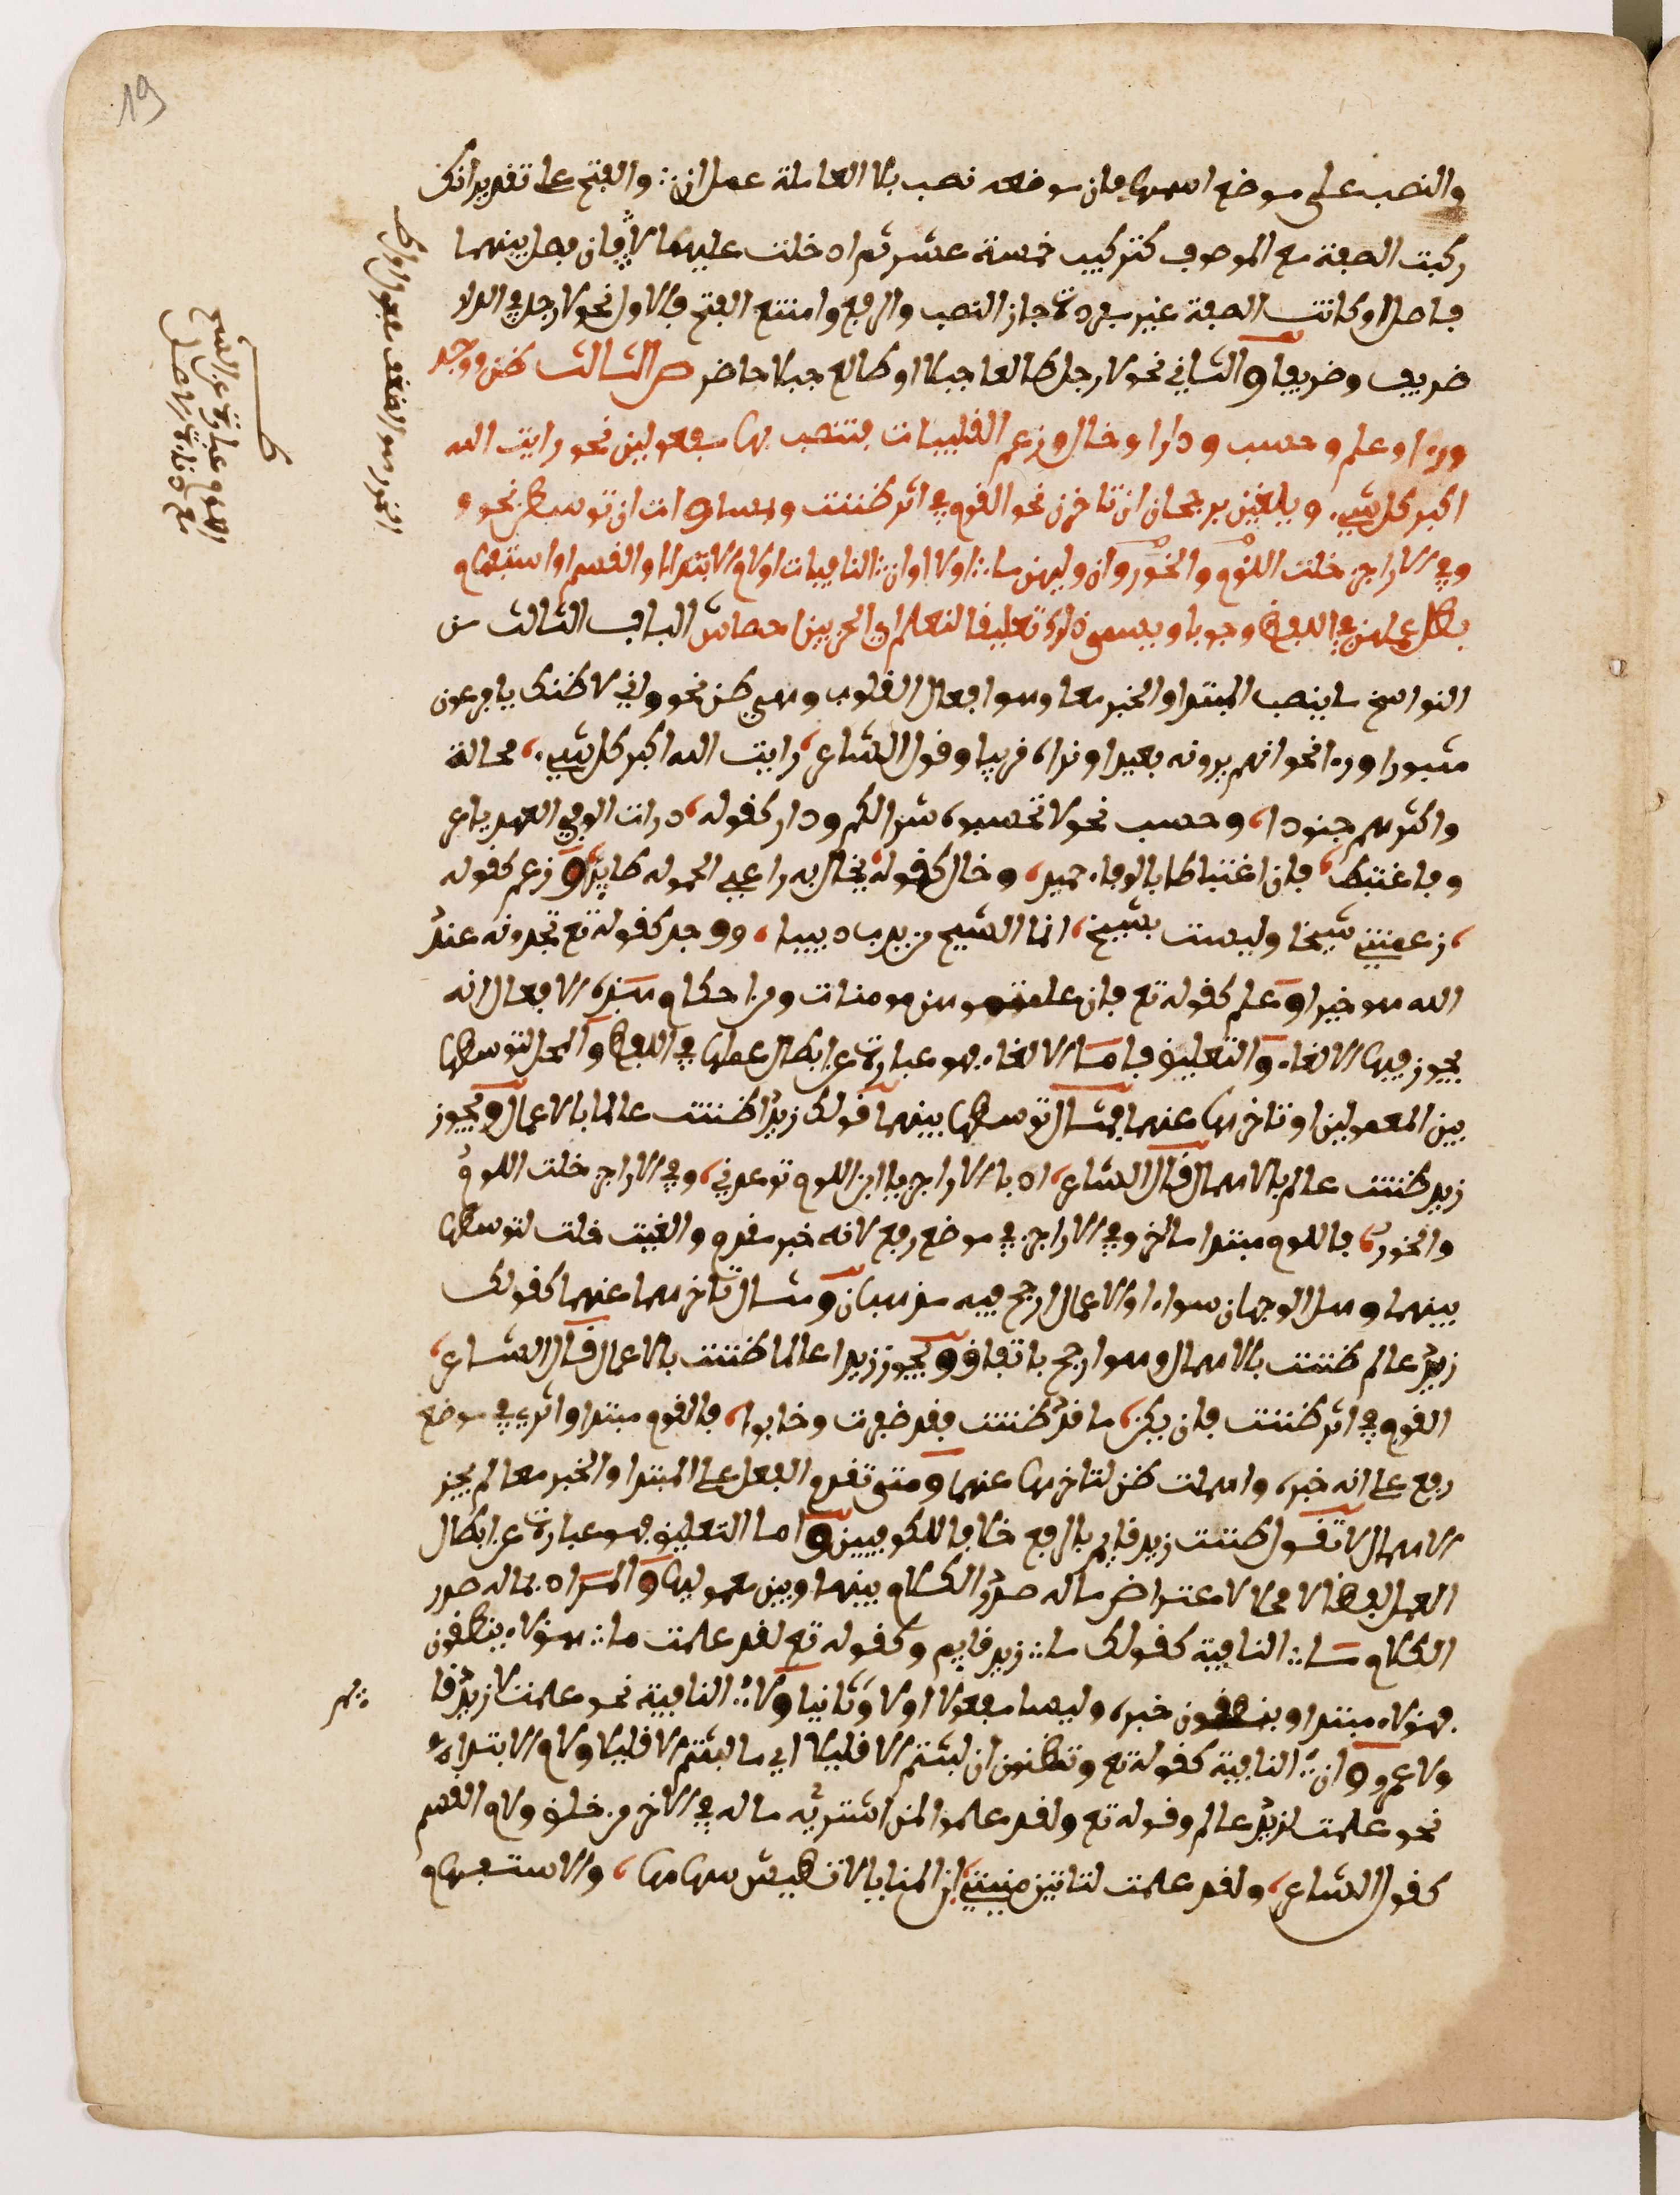 19
والنصب على موضع اسمها فان موضعه نصب بلا العاملة عمل ان والفتح على تقدير انك
ركبت الصفة مع الموصوف كتركيب خمسة عشر ثم ادخلت عليهما لا فان فصل بينهما
فاصل او كانت الصفة غير مفردة جاز النصب والرفع وامتنع الفتح فالاول نحو لا رجل في الدار
ظريف وظريفا والثاني نحو لا رجل طالعا جبلا او طالع جبلا حاضر ص الثالث ظن ووجد
ورءا وعلم وحسب ودرا وخال وزعم القلبيات فتنصب بها مفعولين نحو رايت الله
اكبر كل شيء ويلغين برجحان ان تاخرن نحو القوم في اثر ظننت وبمساوات ان توسطن نحو و
وفي الاراجز خلت اللؤم والخور وان وليهن ما او لا او ان النافيات او لام الابتداء او القسم او استفهام
بطل عملهن في اللفظ وجوبا ويسمى ذلك تعليقا لنعلم اي الحزبين احصا ش الباب الثالث من
النواسخ ما ينصب المبتدا والخبر معا وهو افعال القلوب وهي ظن نحو واني لاظنك يا فرعون
مثبورا ورءا نحو انهم يرونه بعيدا ونراه قريبا وقول الشاعر رايت الله اكبر كل شيء محالة
واكثرهم جنودا وحسب نحو لا تحسبوه شرا لكم ودرا كقوله دريت الوفي العهد يا عر
و فاغتبط فان اغتباطا بالوفاء حميد وخال كقوله يخال به راعي الحمولة طايرا وزعم كقوله
زعمتني شيخا وليست بشيخ انما الشيخ من يدب دبيبا ووجد كقوله تع تجدوه عند
الله هو خيرا وعلم كقوله تع فان علمتموهن مومنات ومن احكام هذه الافعال انه
يجوز فيها الالغاء والتعليق فاما الالغاء فهو عبارة عن ابطال عملها في اللفظ والمحل لتوسطها
بين المعمولين او تاخرها عنهما فمثال توسطها بينهما قولك زيدا ظننت عالما بالاعمال ويجوز
زيد ظننت عالم بالاهمال قال الشاعر ابا لاراجيز يا ابن اللوم توعدني وفي الاراجز خلت اللوم
والخور فاللوم مبتدا مؤخر وفي الاراجز في موضع رفع لانه خبر مقدم والغيت خلت لتوسطها
بينهما وهل الوجهان سواء او الاعمال ارجح فيه مذهبان ومثال تاخرها عنهما كقولك
زيد عالم ظننت بالاهمال وهو ارجح باتفاق ويجوز زيدا عالما ظننت بالاعمال قال الشاعر
القوم في اثر ظننت فان يكن ما قد ظننت فقد ظفرت وخابوا فالقوم مبتدا واثري في موضع
رفع على انه خبره واهملت ظن لتاخرها عنهما ومتى تقدم الفعل على المبتدا والخبر معا لم يجز
الاهمال لا تقول ظننت زيد قايم بالرفع خلافا للكوفيين واما التعليق فهو عبارة عن ابطال
العمل لفظا لا محلا لاعتراض ماله صدر الكلام بينها وبين معموليها والمراد بماله صدر
الكلام ما النافية كقولك ما زيد قايم وكقوله تع لقد علمت ما هؤلاء ينطقون
فهؤلاء مبتدا وينطقون خبره وليسا مفعولا اولا وثانيا ولا النافية نحو علمت لا زيد قا
ولا عمرو وان النافية كقوله تع وتظنون ان لبثتم الا قليلا اي ما لبثتم الا قليلا ولام الابتداء
نحو علمت لزيد عالم وقوله تع ولقد علموا لمن اشتريه ماله في الاخر من خلق ولام القسم
كقول الشاعر ولقد علمت لتاتين منيتي ان المنايا لا تطيش سهامها والاستفهام